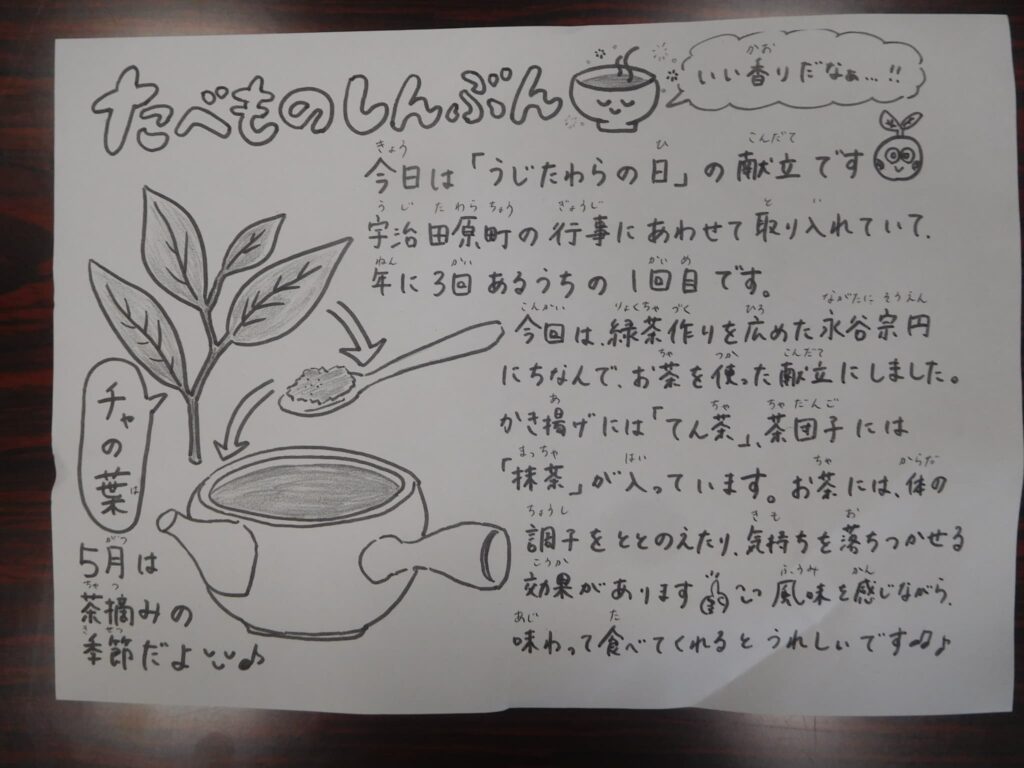 たべものしんぶん
いい香りだなぁ…!!
今日は「うじたわらの日」の献立です
宇治田原町の行事にあわせて取り入れていて、
年に3回あるうちの1回目です。
今回は、緑茶作りを広めた永谷宗円
にちなんで、お茶を使った献立にしました。
かき揚げには「てん茶」、茶団子には
「抹茶」が入っています。お茶には、体の
調子をととのえたり、気持ちを落ちつかせる
効果があります 風味を感じながら、
味わって食べてくれるとうれしいです♫♪
チャの葉
5月は
茶摘みの
季節だよ♪